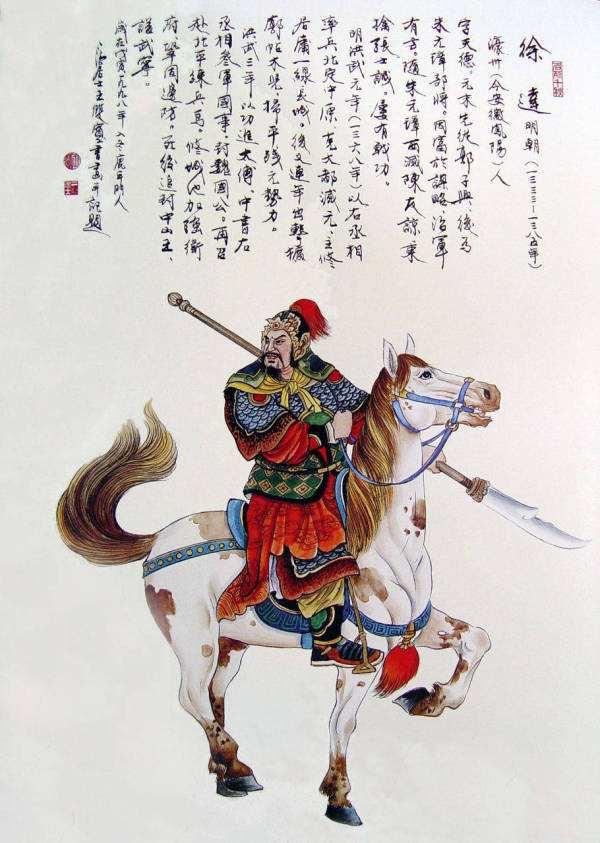 徐達 明朝（一三三二—一三八五年）
濠州（今安徽鳳陽）人
字天德。元末先從郭子興，後爲
朱元璋部將。因富於謀略、治軍
有方。隨朱元璋西滅陳友諒，東
擒張士誠。屢有戰功。
明洪武元年（一三六八年）以右丞相
率兵北定中原，克大都滅元、主修
居庸一線長城。後又連年出擊擴
廓帖木兒，掃平殘元勢力。
洪武三年以功進太傅、中書右
丞相參軍國事。封魏國公。再召
赴北平練兵馬。修城池加強衛
府鞏固邊防。死後追封中山王、
諡武寧。
歲在戊寅一九九八年入冬
居士王雙寬書畫并記題